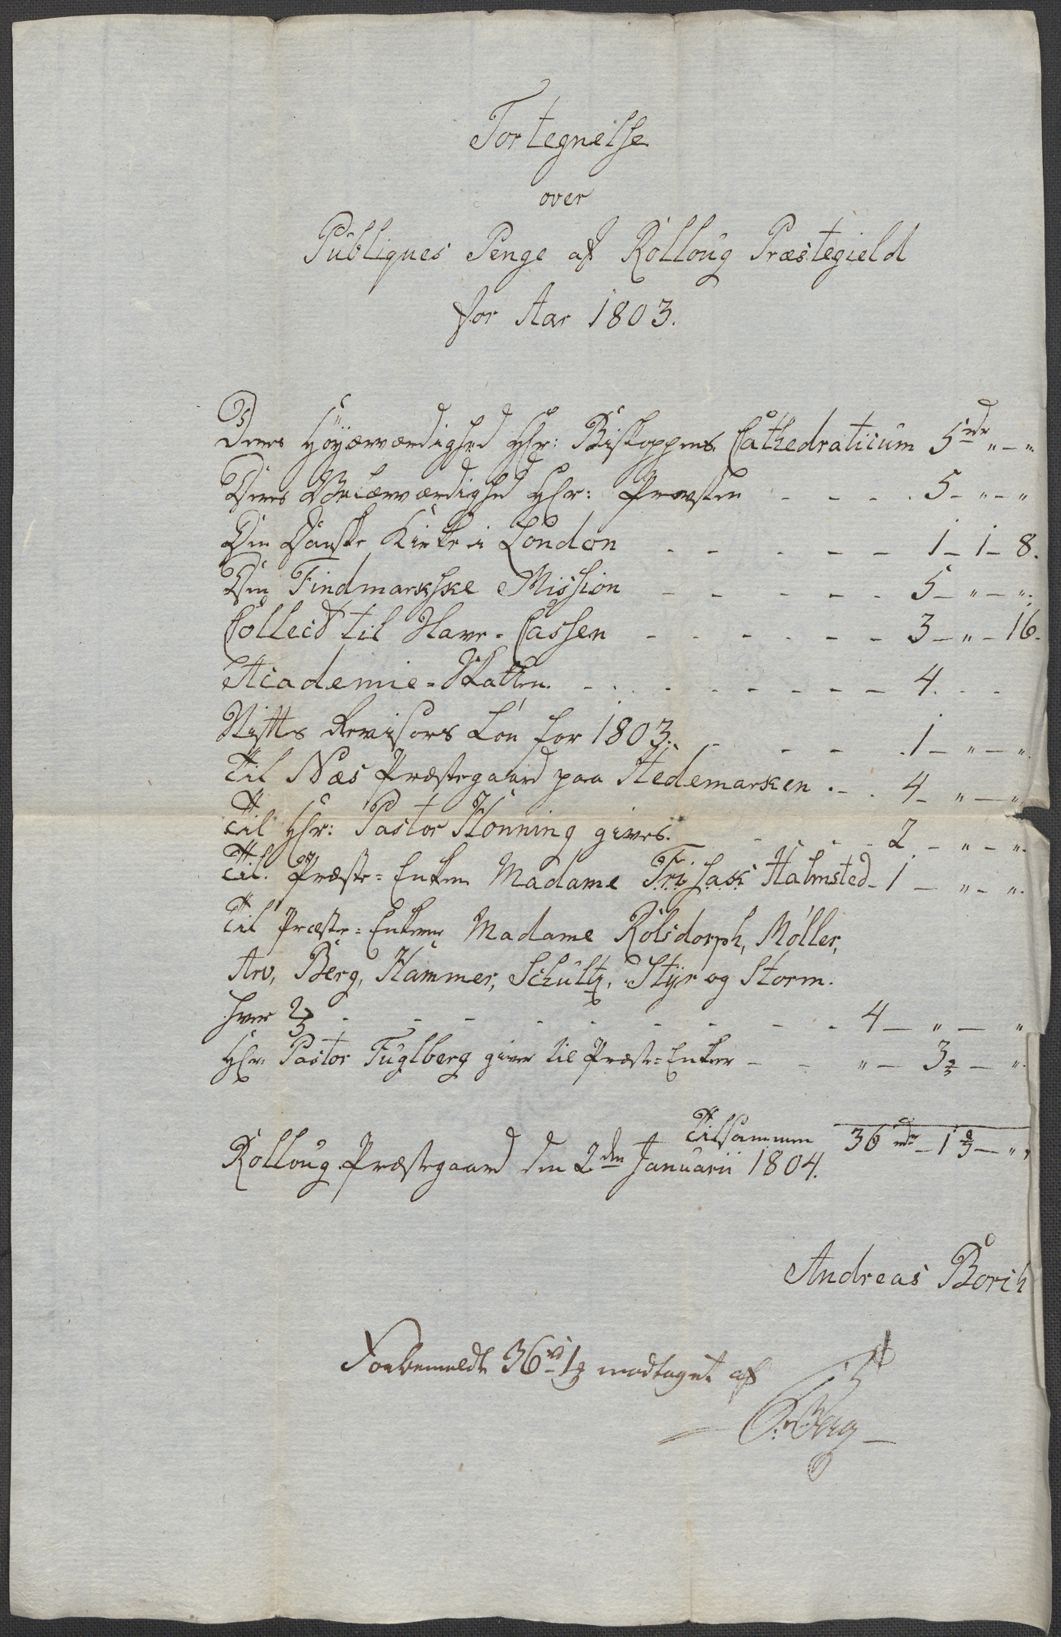 Fortegnelse
over
Publiques Penge af Rolloug Præstegield
for Aar 1803.
Deres Høyærværdighed Hr: Biskoppens Cathedraticum 5 rdr „ — „
Deres Velærværdighed Hr: Provsten - - - - 5 - „ - „
Den Danske Kirke i London - - - - - 1 - 1 - 8.
Den Findmarkske Mission - - - - - 5 - „ - „
Collect til Havr-Cassen - - - - - 3 - „ - 16.
Academie-Skatten - - - - - - - - 4. - -
Stifts Revisors Løn for 1803. - - - 1 - „ - „
Til Næs Præstegaard paa Hedemarken - - 4 - „ - „
Til Hr: Pastor Honning gives. - - - 2 - „ - „
Til Præste-Enken Madame Halmsted - 1 - „ - „
Til Præste-Enkerne Madame Rolsdorph, Møller,
Arv, Berg, Hammer, Schultz, Styr og Storm.
hver - - - - - - - - 4 - „ - „
Hr: Pastor Fuglberg giver til Præste-Enker - - „ - 3 - „
Tilsammen 36 rdr - 1 - „
Rolloug Præstegaard den 2den Januarii 1804.
Andreas Borch
Forbemeldte 36 modtaget af
Berg